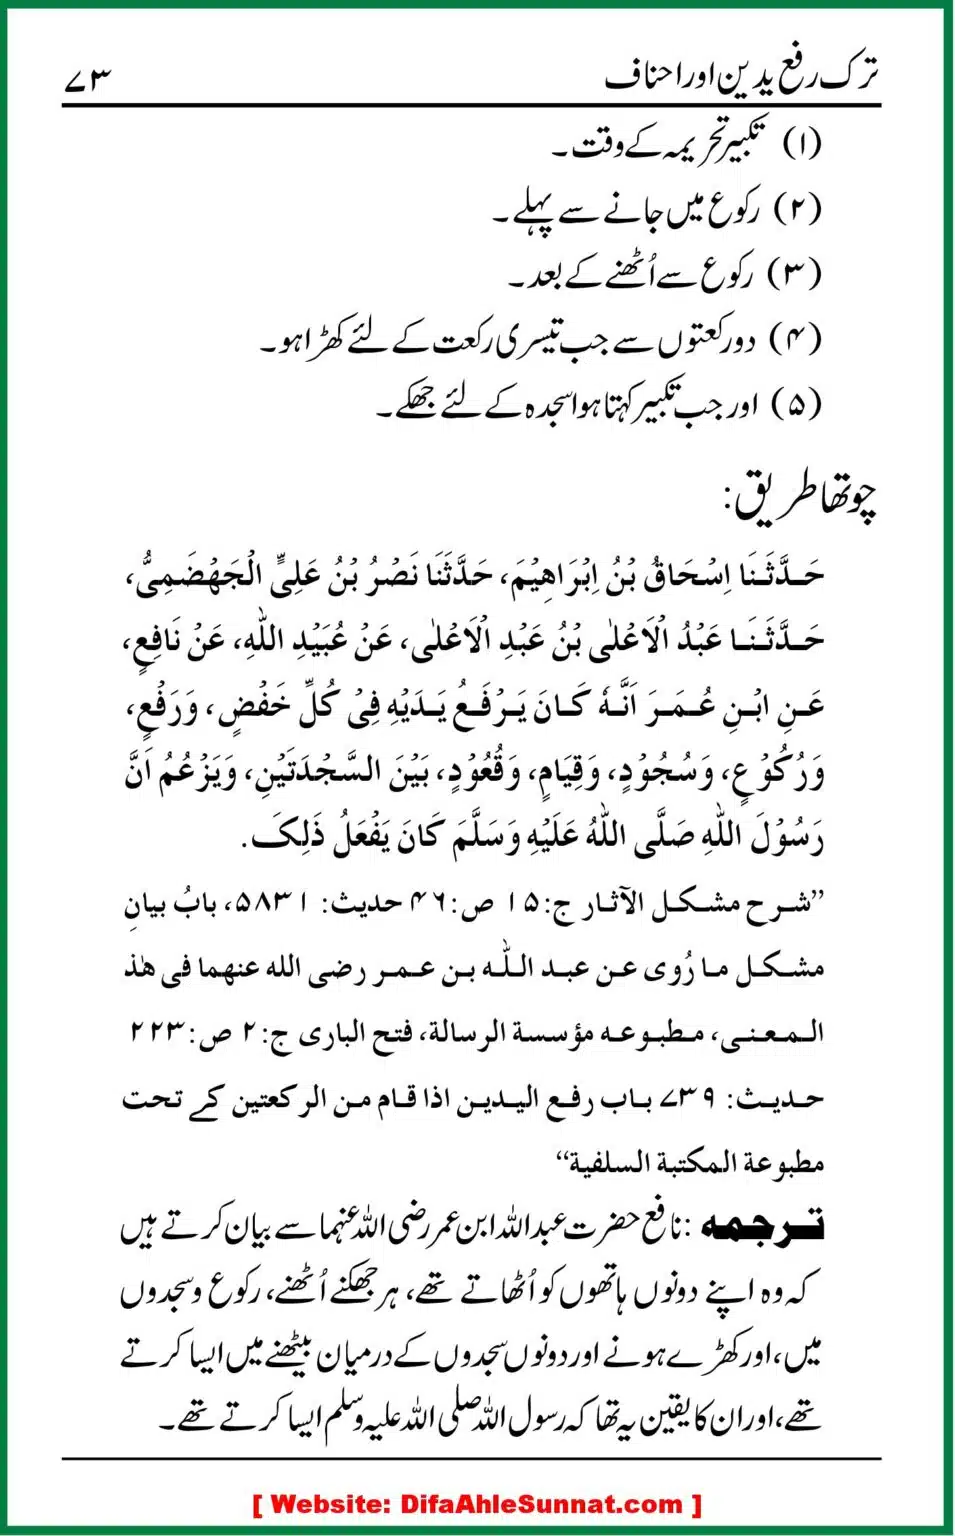 ترک رفع یدین اور احناف ۷۳
(۱) تکبیر تحریمہ کے وقت۔
(۲) رکوع میں جانے سے پہلے۔
(۳) رکوع سے اُٹھنے کے بعد۔
(۴) دو رکعتوں سے جب تیسری رکعت کے لئے کھڑا ہو۔
(۵) اور جب تکبیر کہتا ہوا سجدہ کے لئے جھکے۔
چوتھا طریق:
حَدَّثَنَا اِسْحَاقُ بْنُ اِبْرَاهِيْمَ، حَدَّثَنَا نَصْرُ بْنُ عَلِيٍّ الْجَهْضَمِيُّ،
حَدَّثَنَا عَبْدُ الْاَعْلٰى بْنُ عَبْدِ الْاَعْلٰى، عَنْ عُبَيْدِ اللّٰهِ، عَنْ نَافِعٍ،
عَنِ ابْنِ عُمَرَ اَنَّهٗ كَانَ يَرْفَعُ يَدَيْهِ فِىْ كُلِّ خَفْضٍ، وَرَفْعٍ،
وَرُكُوْعٍ، وَسُجُوْدٍ، وَقِيَامٍ، وَقُعُوْدٍ، بَيْنَ السَّجْدَتَيْنِ، وَيَزْعُمُ اَنَّ
رَسُوْلَ اللّٰهِ صَلَّى اللّٰهُ عَلَيْهِ وَسَلَّمَ كَانَ يَفْعَلُ ذَلِكَ.
”شرح مشكل الآثار ج:۱۵ ص:۴۶ حديث: ۵۸۳۱، بابُ بيانِ
مشكل ما رُوى عن عبد اللّٰه بن عمر رضى الله عنهما فى هٰذ
المعنى، مطبوعه مؤسسة الرسالة، فتح البارى ج:۲ ص:۲۲۳
حديث: ۷۳۹ باب رفع اليدين اذا قام من الركعتين کے تحت
مطبوعة المكتبة السلفية“
ترجمه: نافع حضرت عبداللہ ابن عمر رضی اللہ عنہما سے بیان کرتے ہیں
کہ وہ اپنے دونوں ہاتھوں کو اُٹھاتے تھے، ہر جھکنے اُٹھنے، رکوع و سجدوں
میں، اور کھڑے ہونے اور دونوں سجدوں کے درمیان بیٹھنے میں ایسا کرتے
تھے، اور ان کا یقین یہ تھا کہ رسول اللہ صلی اللہ علیہ وسلم ایسا کرتے تھے۔
[ Website: DifaAhleSunnat.com ]